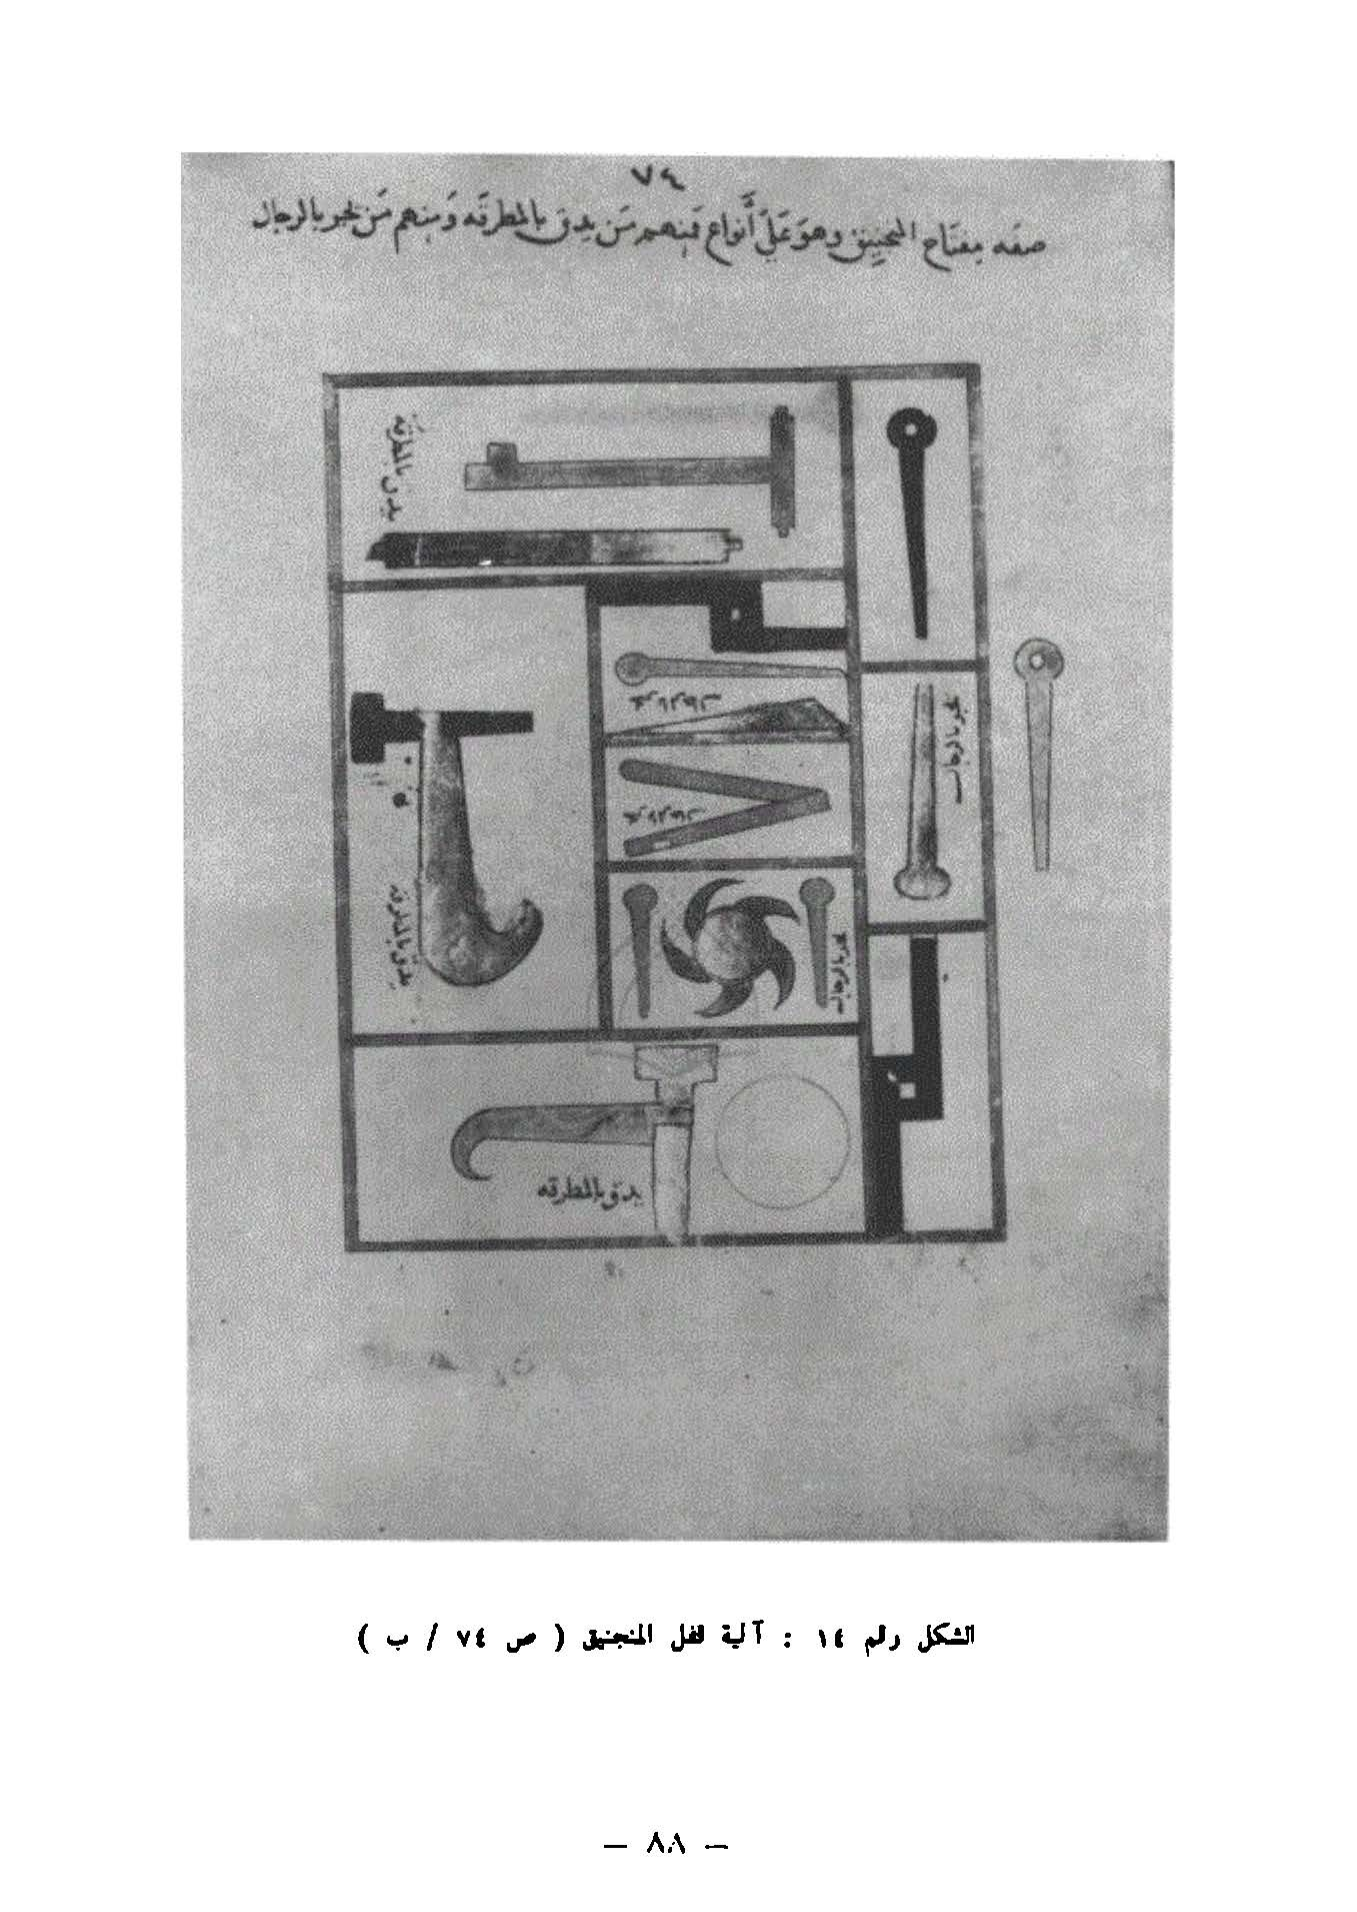 ٧٤
صفه مفتاح المنجنيق وهو على أنواع فمنهم من يدق بالمطرقه ومنهم من يجر بالرجال
يدق بالمطرقه
يجر بالرجال
يجر بالرجال
يجر بالرجال
يدق بالمطرقه
يجر بالرجال
يدق بالمطرقه
الشكل رقم ١٤ : آلية قفل المنجنيق ( ص ٧٤ / ب )
— ٨٨ —